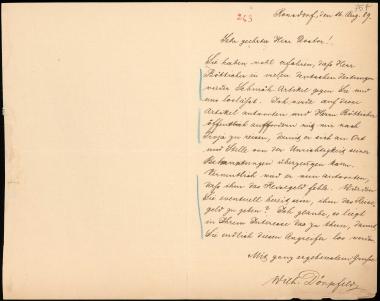 263
Ronsdorf, den 16. Aug. 89.
Sehr geehrter Herr Doctor!
Sie haben wohl erfahren, dass Herr
Bötticher in vielen deutschen Zeitungen
wieder Schmäh Artikel gegen Sie und
uns loslässt. Ich werde auf diese
Artikel antworten und Herrn Bötticher
öffentlich auffordern mit mir nach
Troja zu reisen, damit er sich an Ort
und Stelle von der Unrichtigkeit seiner
Behauptungen überzeugen kann.
Vermuthlich wird er nun antworten,
dass ihm das Reisegeld fehle. Würden
Sie eventuell bereit sein, ihm das Reise-
geld zu geben? Ich glaube, es liegt
in Ihrem Interesse das zu thun, damit
Sie endlich diesen Angreifer los werden.
Mit ganz ergebenstem Grusse
Wilh. Dörpfeld